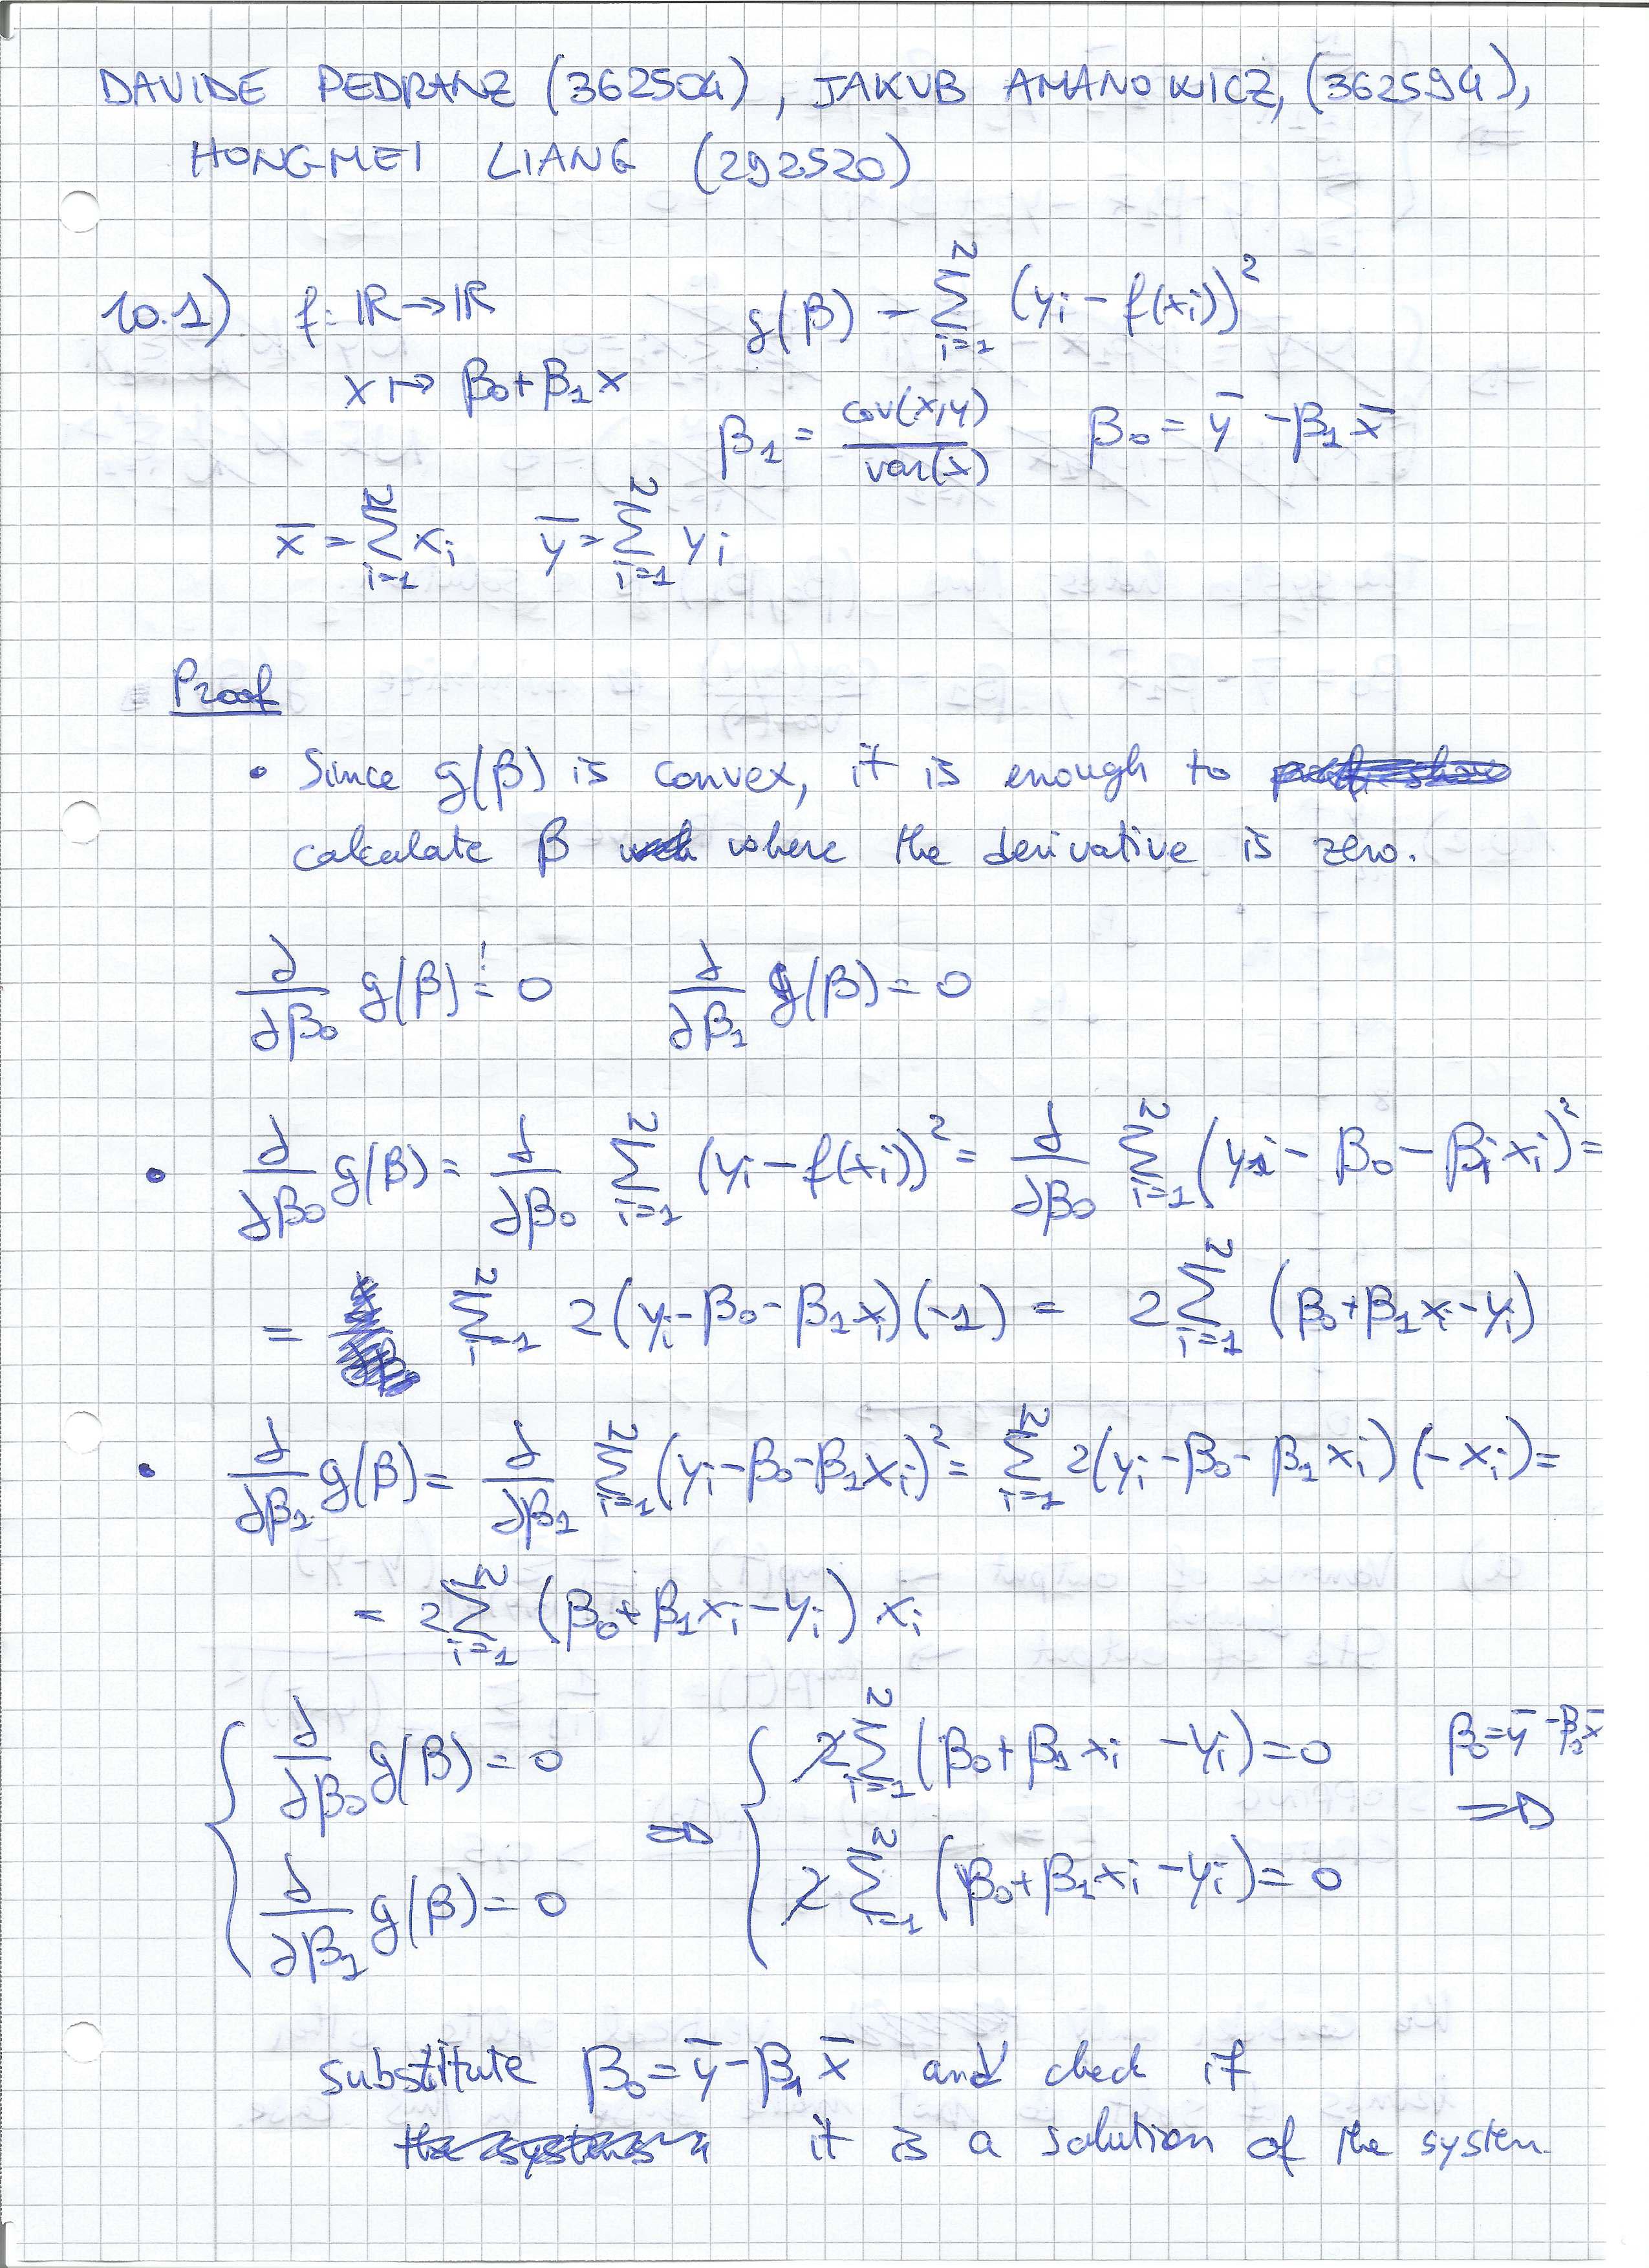 DAVIDE PEDRANZ (362504), JAKUB AMANOWICZ, (362594),
HONGMEI LIANG (292520)
10.1) f: ℝ → ℝ g(β) = ∑_{i=1}^{N} (y_i - f(x_i))²
x ↦ β₀ + β₁x
β₁ = cov(x,y)/var(x) β₀ = ȳ - β₁x̄
x̄ = ∑_{i=1}^{N} x_i ȳ = ∑_{i=1}^{N} y_i
Proof
• Since g(β) is convex, it is enough to
calculate β where the derivative is zero.
∂/∂β₀ g(β) =! 0 ∂/∂β₁ g(β) = 0
• ∂/∂β₀ g(β) = ∂/∂β₀ ∑_{i=1}^{N} (y_i - f(x_i))² = ∂/∂β₀ ∑_{i=1}^{N} (y_i - β₀ - β_i x_i)² =
= ∑_{i=1}^{N} 2(y_i - β₀ - β₁x_i)(-1) = 2∑_{i=1}^{N} (β₀ + β₁x_i - y_i)
• ∂/∂β₁ g(β) = ∂/∂β₁ ∑_{i=1}^{N} (y_i - β₀ - β₁x_i)² = ∑_{i=1}^{N} 2(y_i - β₀ - β₁x_i)(-x_i) =
= 2∑_{i=1}^{N} (β₀ + β₁x_i - y_i) x_i
{ ∂/∂β₀ g(β) = 0 ⇒ { 2∑_{i=1}^{N} (β₀ + β₁x_i - y_i) = 0 β₀ = ȳ - β₀x̄ ⇒
∂/∂β₁ g(β) = 0 2∑_{i=1}^{N} (β₀ + β₁x_i - y_i) = 0
substitute β₀ = ȳ - β₁x̄ and check if
it is a solution of the system